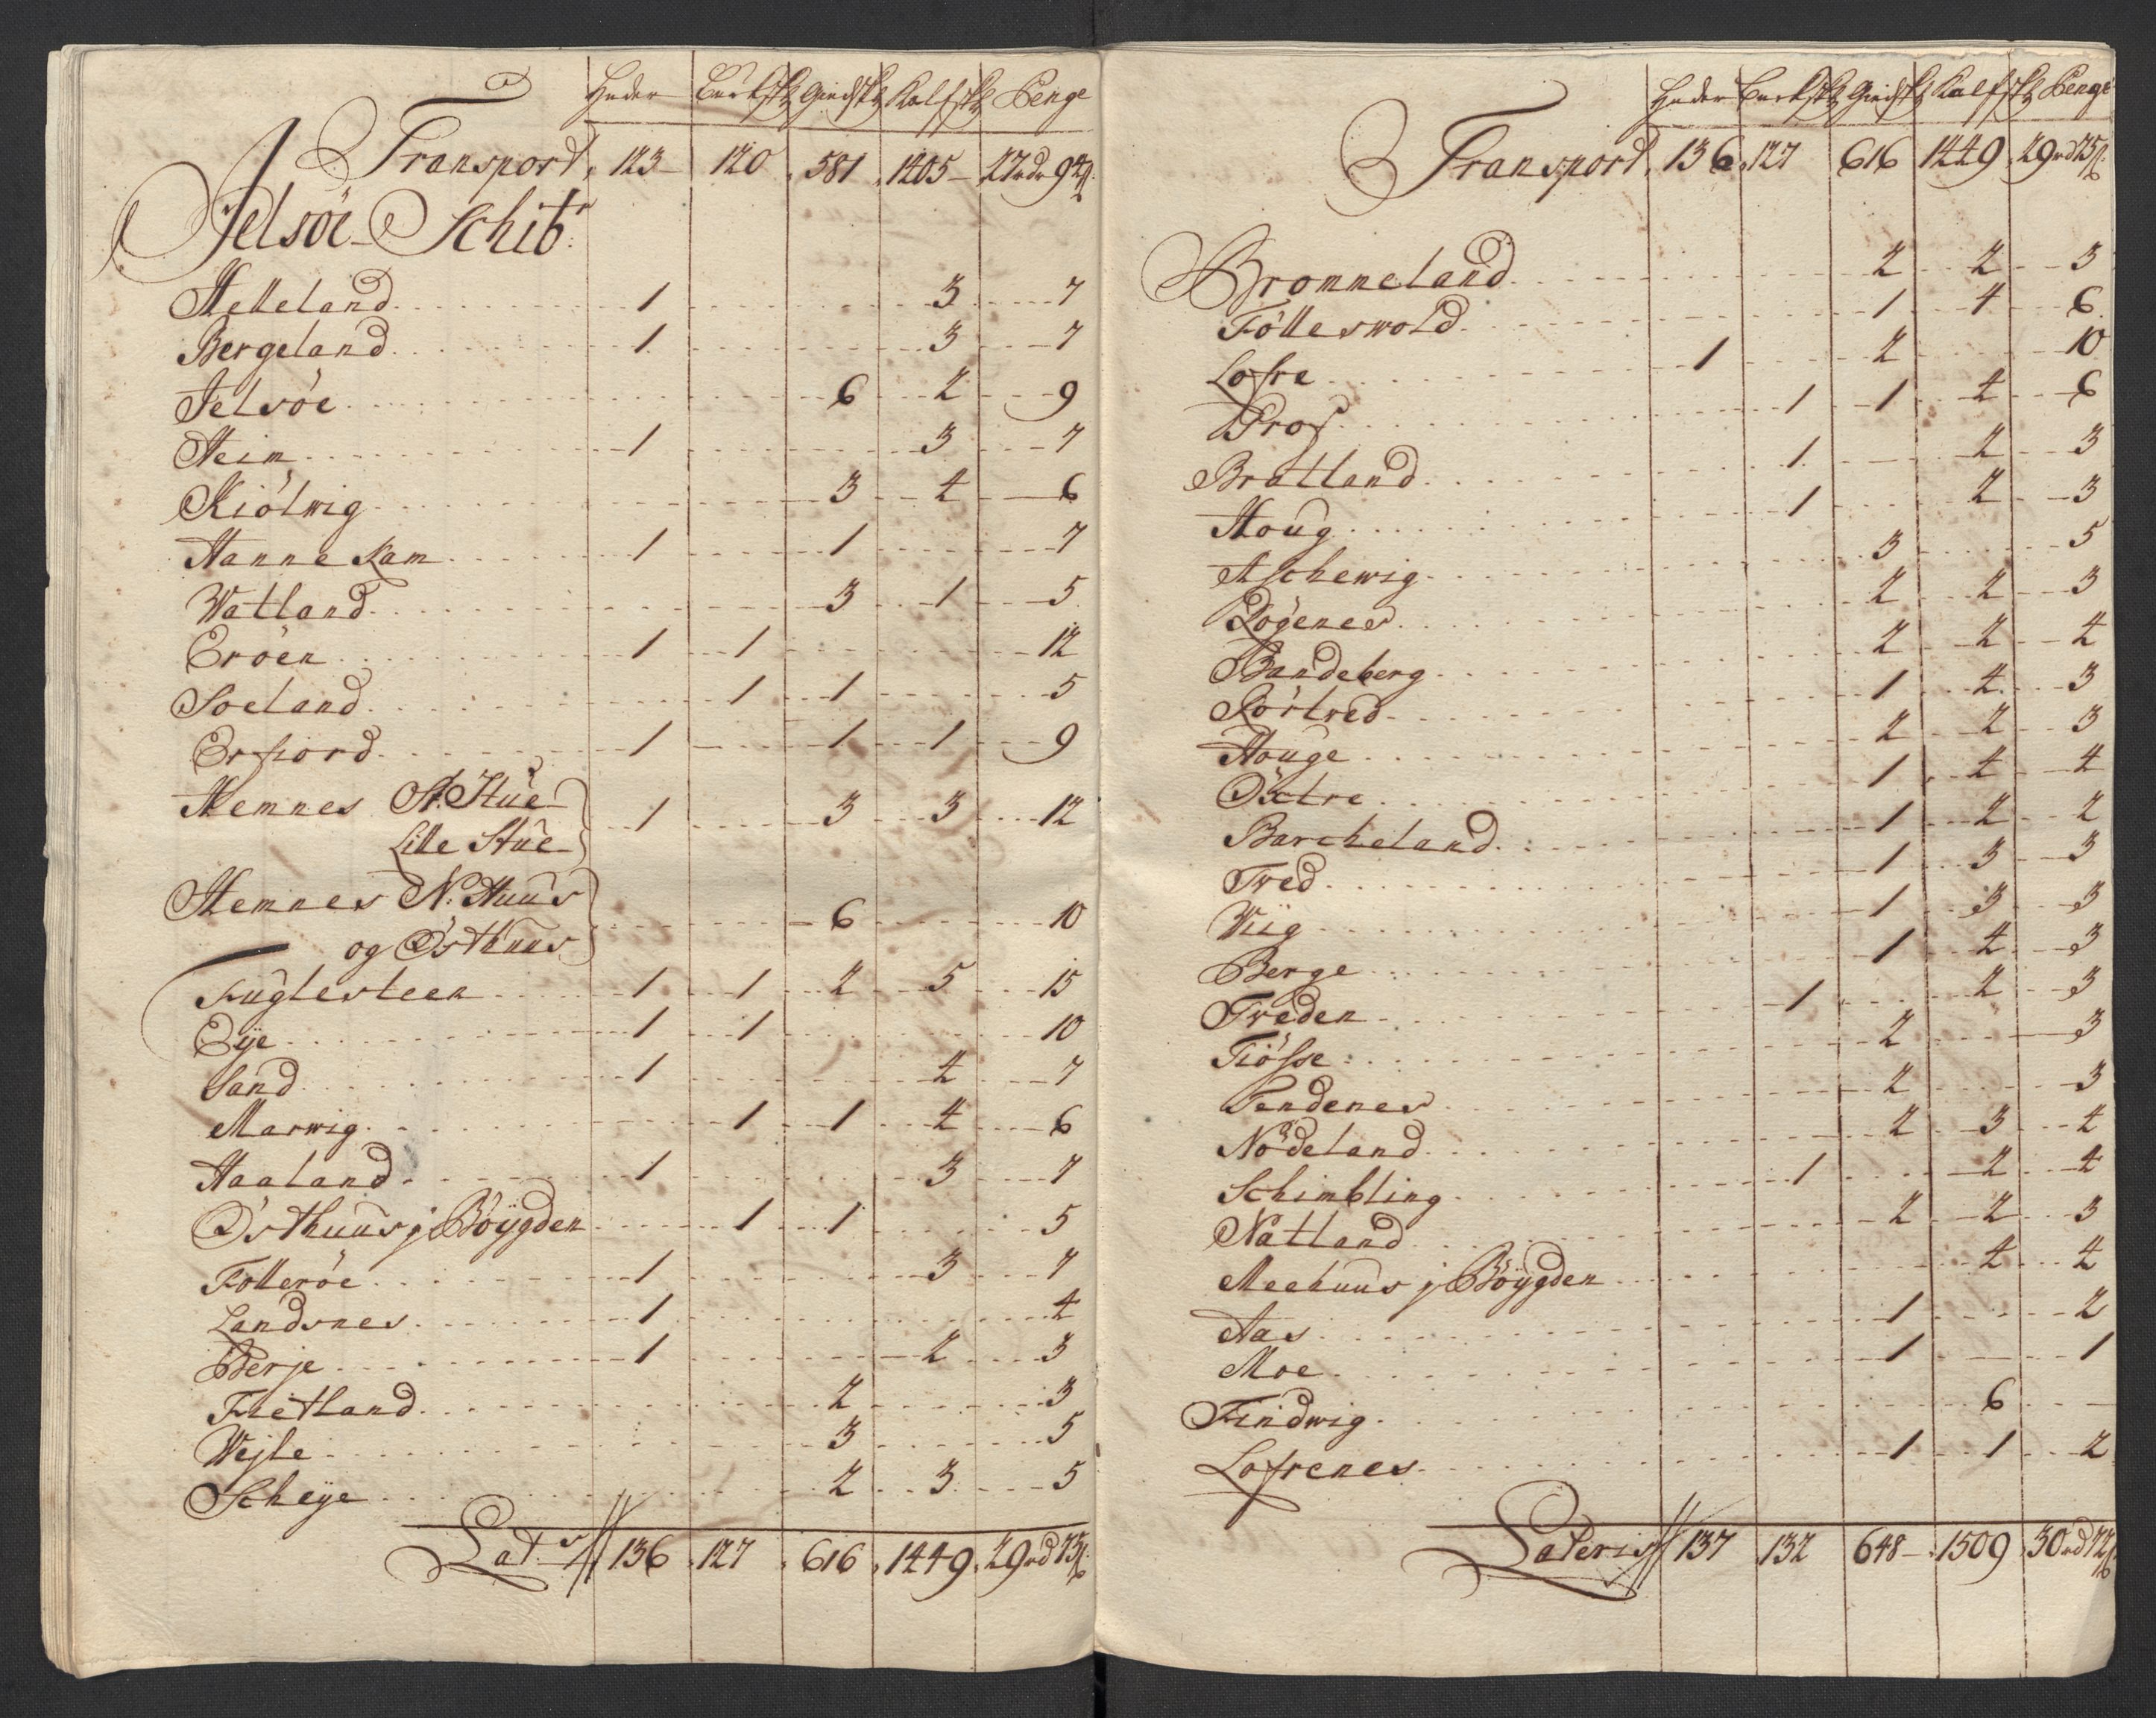 Huder Bucksk Giedsk Kalfsk Penge
Transport, 123 120 581 1405 27rdr 94ß
Jelsöe Schib:
Helleland 1 3 7
Bergeland 1 3 7
Jelsöe 6 2 9
Heim 1 3 7
Kiölwig 3 4 6
Hanne Kam 1 1 7
Watland 3 1 5
Eröen 1 1 12
Soeland 1 1 5
Erfiord 1 1 1 9
Hemnes St. Stue
Lille Stue 1 3 3 12
Hemnes N: Huus
og Østhuus 6 10
Fuglesteen 1 1 2 5 15
Eÿe 1 1 10
Sand 1 4 7
Marwig 1 1 4 6
Haaland 1 3 7
Østhuus j Böÿgden 1 1 5
Folleröe 1 3 7
Landsnes 1 4
Berje 1 2 3
Fietland 2 3
Wejle 3 5
Scheÿe 2 3 5
Lat:s 136 127 616 1449 29rd 73ß
Huder Bucksk Giedsk Kalfsk Penge
Transport, 136 127 616 1449 29rd 73ß
Bronneland 2 2 3
Fölleswold 1 4 6
Lofre 1 2 10
Grof 1 1 4 6
Bratland 1 2 3
Houg 1 2 3
Aschewig 3 5
Rögenes 2 2 3
Bandeberg 2 2 4
Rörtved 1 4 3
Houge 2 2 3
Östre 1 4 4
Barcheland 1 2 2
Tved 1 3 3
Wiig 1 3 3
Berge 1 4 3
Treden 1 2 3
Fiösse 2 3
Tendenes 2 3
Nödeland 2 3 4
Schimbling 1 2 4
Natland 2 2 3
Meehuus j Böÿgden 4 4
Aas 1 2
Moe 1 1
Findwig 6
Lofrenes 1 1 2
Lateris 137 132 648 1509 30rd 72ß